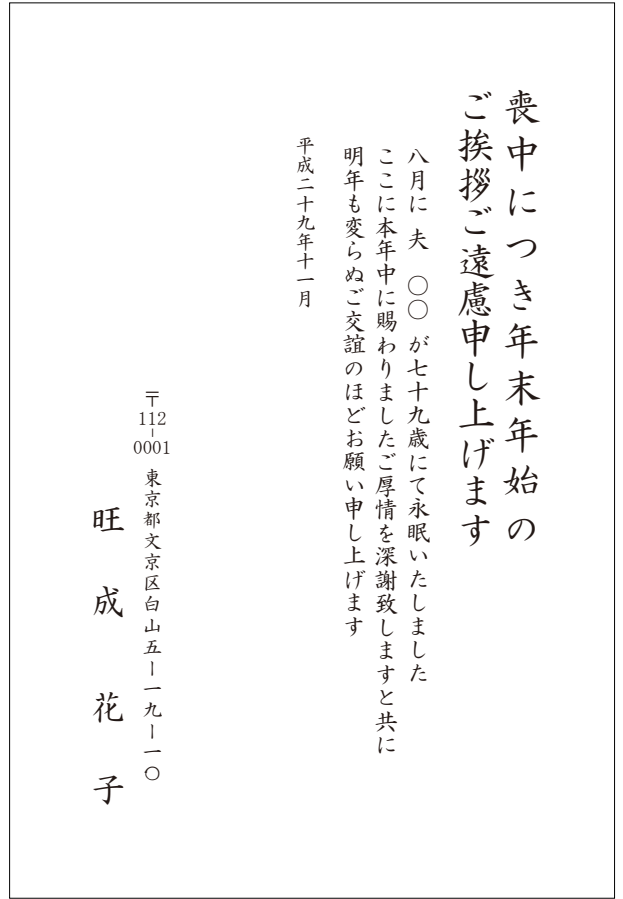 喪中につき年末年始の
ご挨拶ご遠慮申し上げます
八月に 夫 〇〇 が七十九歳にて永眠いたしました
ここに本年中に賜わりましたご厚情を深謝致しますと共に
明年も変らぬご交誼のほどお願い申し上げます
平成二十九年十一月
〒112-0001 東京都文京区白山五ー一九ー一〇
旺成花子